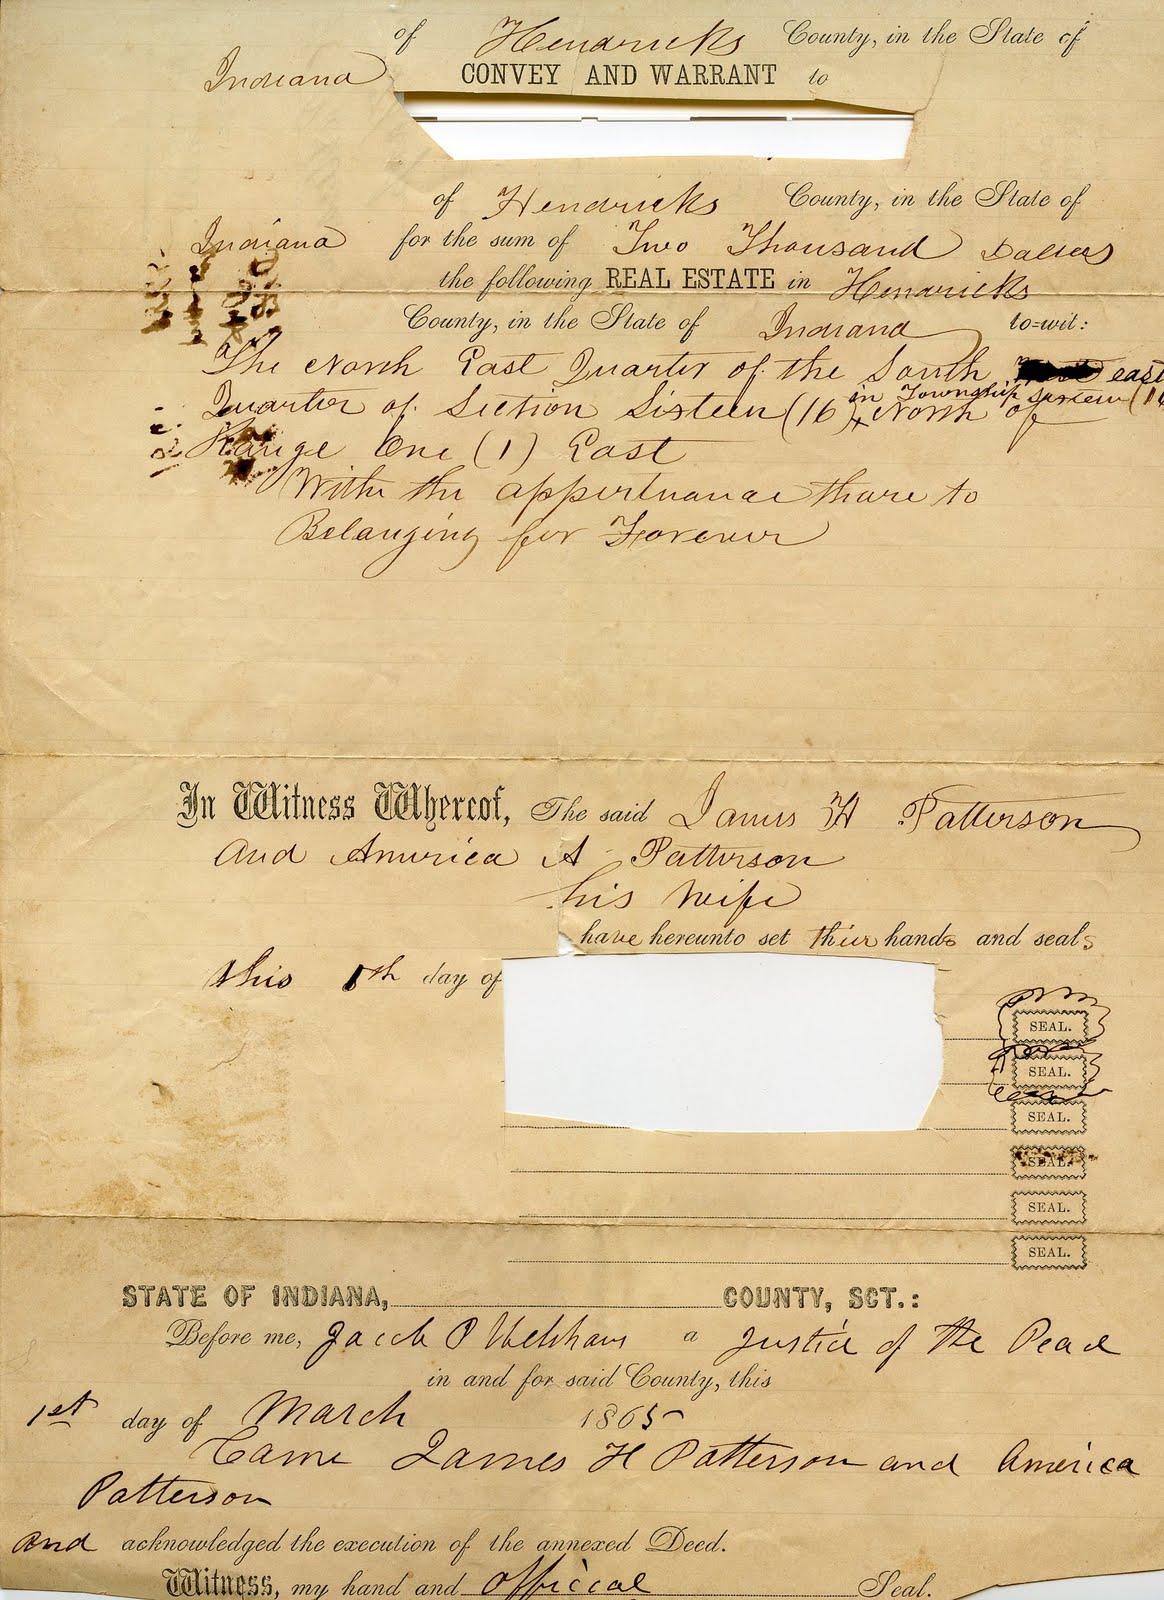 of Hendricks County, in the State of
Indiana CONVEY AND WARRANT to
of Hendricks County, in the State of
Indiana for the sum of Two Thousand Dollers
the following REAL ESTATE in Hendricks
County, in the State of Indiana to=wit:
The North East Quarter of the South east
in Township sixteen (16
Quarter of Section Sixteen (16) x North of
Range One (1) East
With the appertuanae thare to
Belanging for Forever
In Witness Whereof, The said James H Patterson
and America A Patterson
his wife
have hereunto set thier hands and seals
this 1th day of
SEAL.
SEAL.
SEAL.
SEAL.
SEAL.
SEAL.
STATE OF INDIANA, COUNTY, SCT.:
Before me, Jacob P a Justice of the Peace
in and for said County, this
1st day of March 1865
Came James H Patterson and America
Patterson
and acknowledged the execution of the annexed Deed.
Witness, my hand and official Seal.